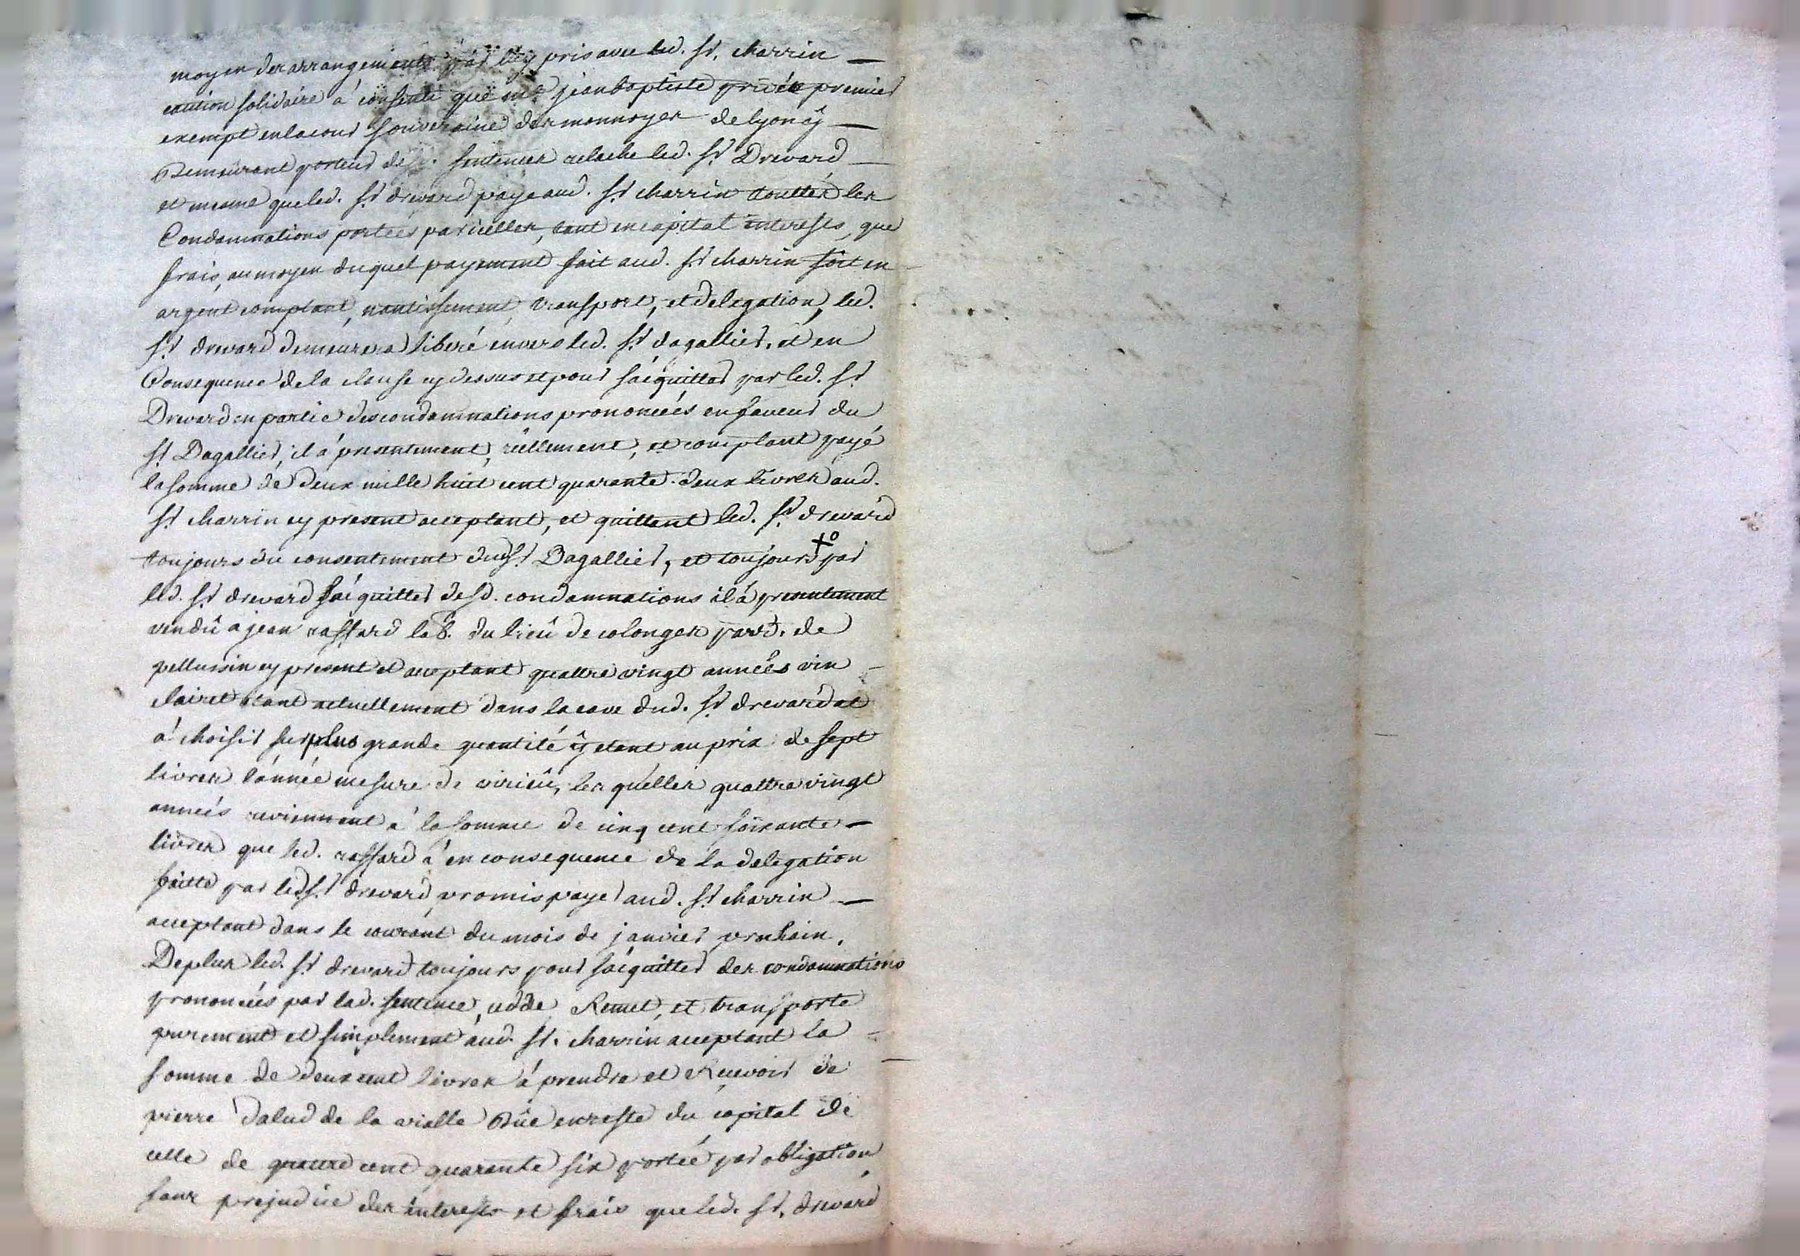 moyen des arrangements par luy pris avec led. Sr. charrin —
caution solidaire a consenti que me jean baptiste privée premier
exempt en la cour souveraine des monnoyes de lyon cy —
Demeurant porteur desd. sentences relache led. Sr Drevard —
et meme que led. Sr drevard paye aud. Sr charrin touttes les
Condamnations portées par icelles, tant en capital interests, que
frais, au moyen duquel payement fait aud. Sr charrin soit en
argent comptant, nantissement, transport, et delegation, led.
Sr drevard demeurera liberé envers led. Sr dagallier, et en
Consequence de la clause cy dessus et pour s'aéquitter par led. Sr
Drevard en partie des condamnations prononcéés en faveur du
Sr Dagallier, il à presentement, réellement, et comptant payé
la somme de deux mille huit cent quarante deux livres aud.
Sr charrin cy present acceptant, et quittant led. Sr drevard
toujours du consentement dud Sr Dagallier, et toujours par
led. Sr drevard s'aéquitter desd. condamnations il à presentement
vendû a jean raffard lab. du lieû de colonges parr. de
pellussin cy present et acceptant quattre vingt annéés vin
clairet étant actuellement dans la cave dud. Sr drevard et
à choisir sur plus grande quantité ÿ etant au prix de sept
livres l'année mesure de virieû, les quelles quattre vingt
années reviennent a la somme de cinq cent soixante —
livres que led. raffard à en consequence de la delegation
faitte par led. Sr drevard, promis payer aud. Sr charrin —
acceptant dans le courant du mois de janvier prochain.
De plus led. Sr drevard toujours pour s'aéquitter des condamnations
prononcéés par lad. sentence, cedde, Remet, et transporte
purement et simplement aud. Sr. charrin acceptant la
somme de deux cent livres à prendre et Recevoir de
pierre dalud de la vialle Düe en reste du capital de
celle de quattre cent quarante six portée par obligation
sans prejudice des interests et frais que led. Sr. drevard